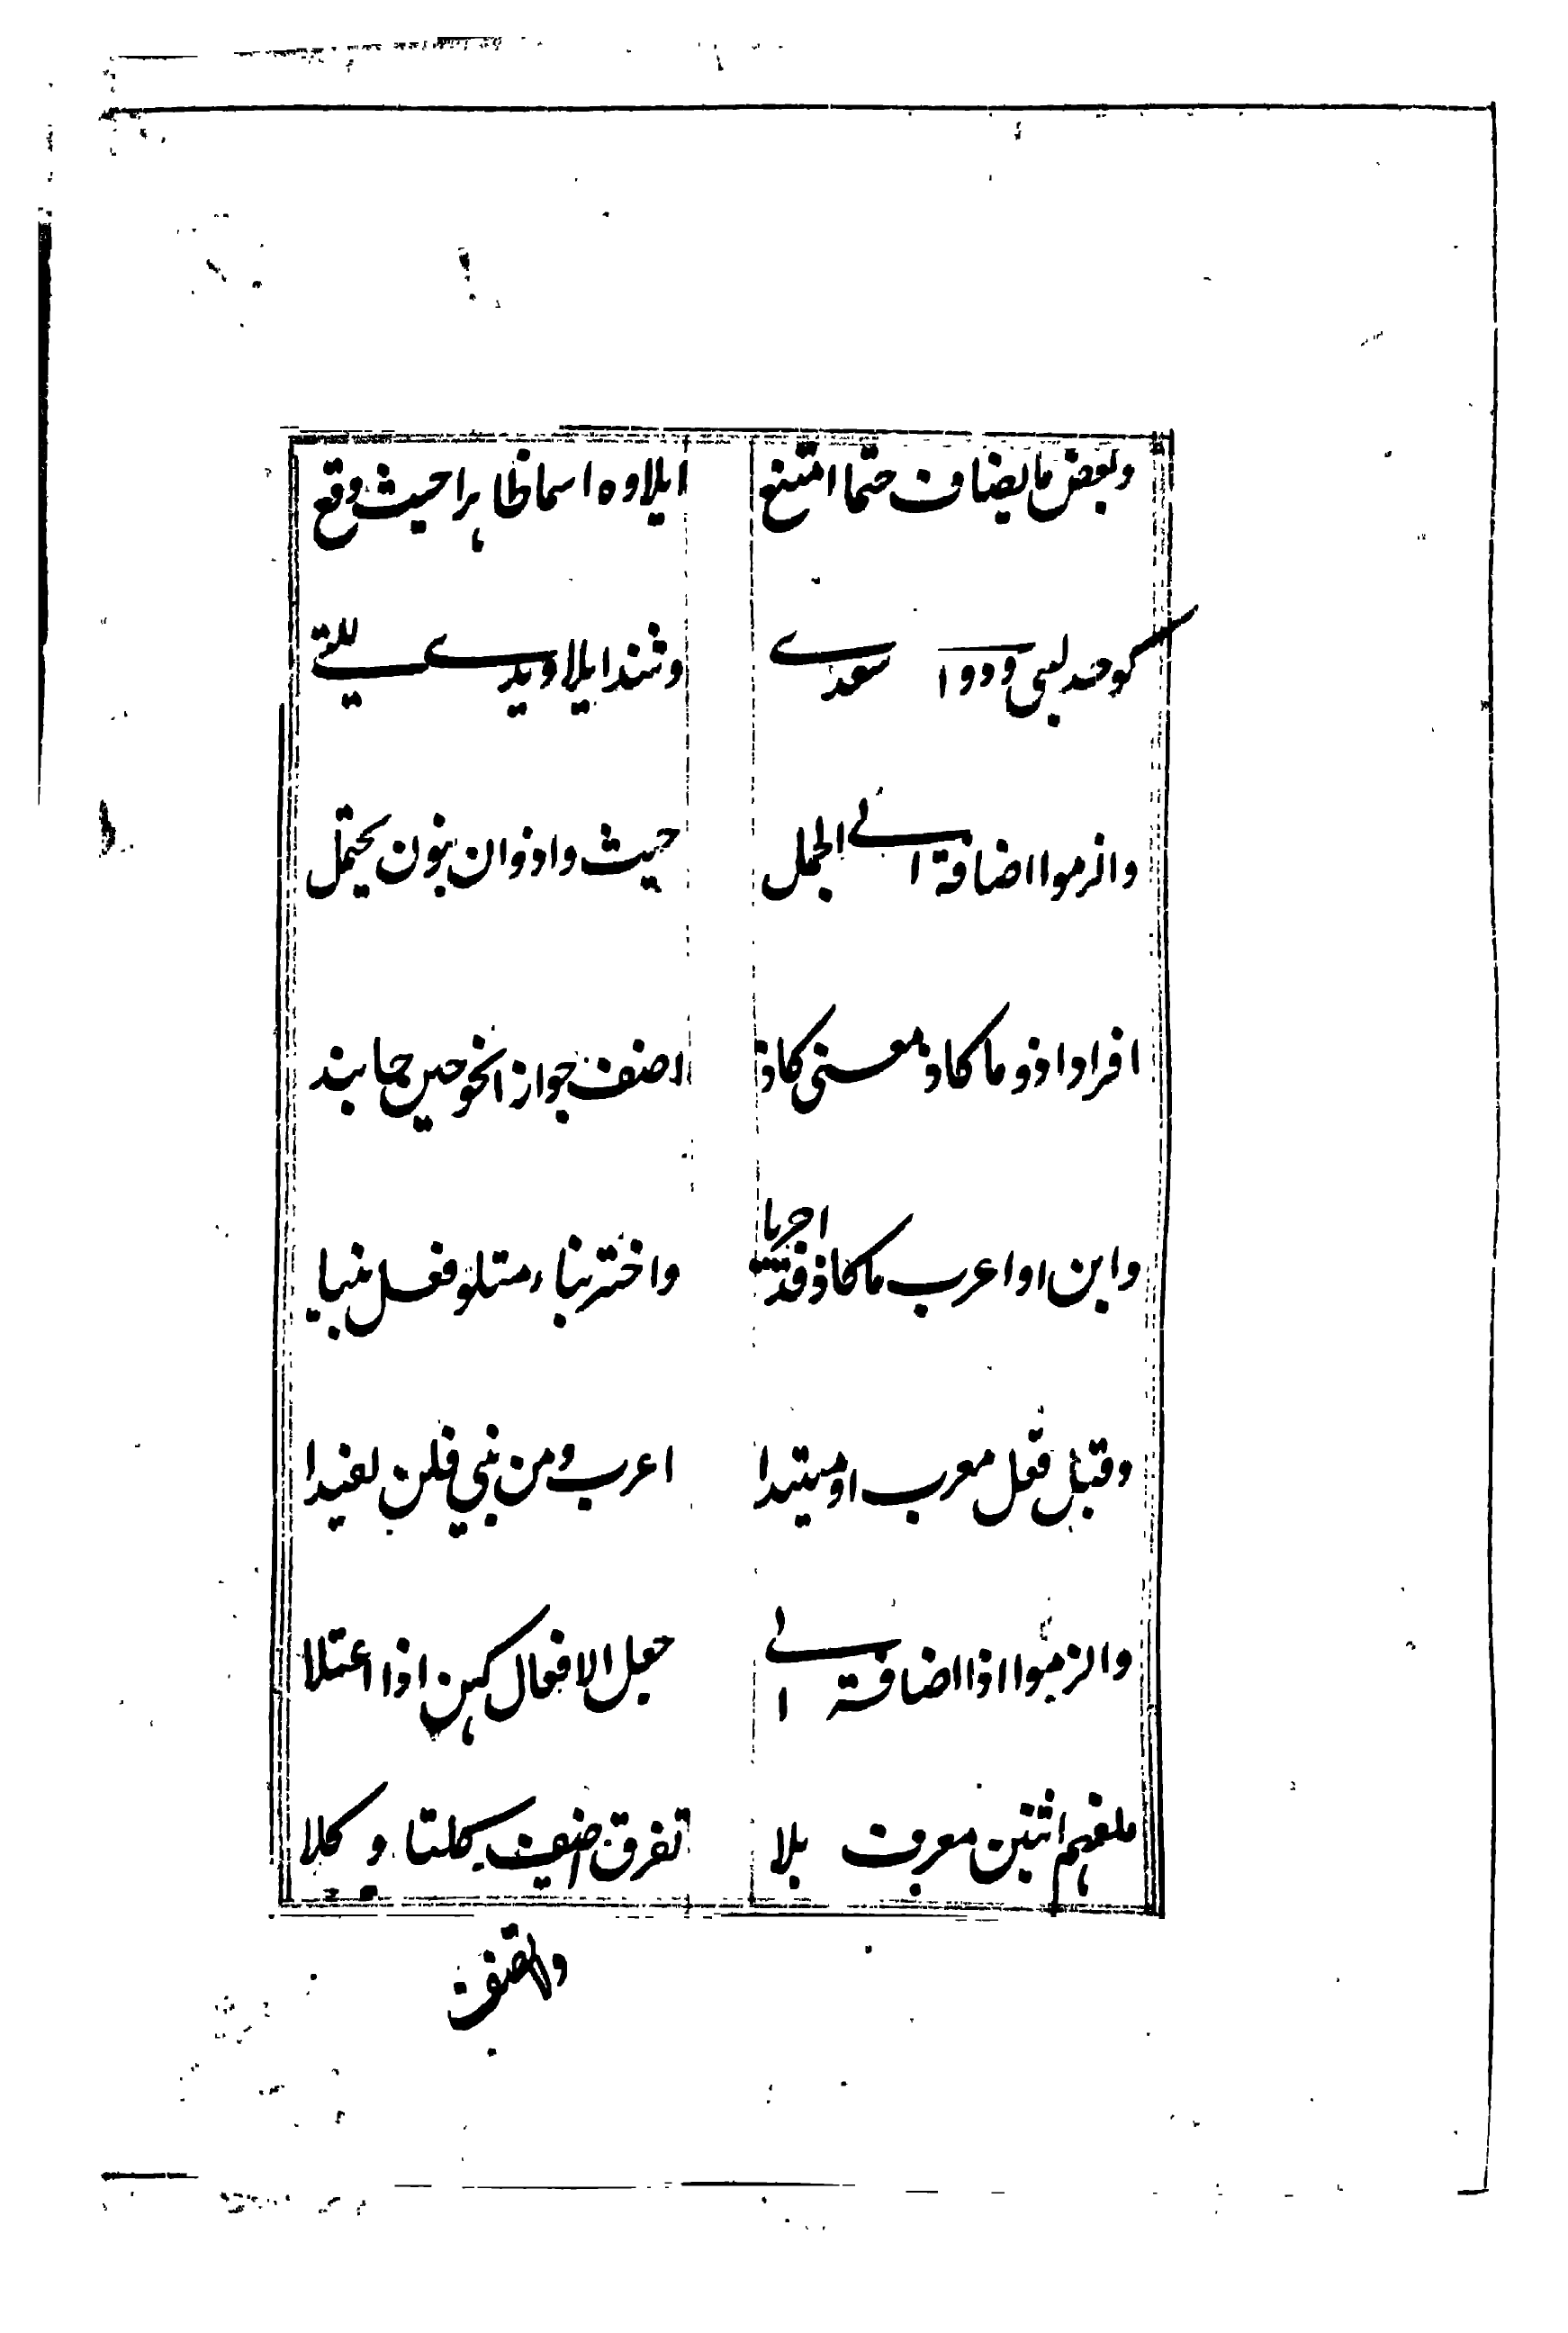 وبعض ما يضاف حتما امتنع ايلاوه اسما ظاهرا حيث وقع
كوحد لبى ودوا سعدي وشذ ايلا ويدي للبي
والزموا اضافة الى الجمل حيث واذ وان ينون يحتمل
افراد اذ وما كاذ معنى كاذ اضف جوازا نحو حين جا نبذ
وابن او اعرب ما كاذ قد اجريا واختر بناء متلو فعل بنيا
وقبل فعل معرب او مبتدا اعرب ومن بنى فلن يفندا
والزموا اذا اضافة الى جمل الافعال كهن اذا اعتلا
ملفهم اثنين معرف بلا تفرق اضيف كلتا وكلا
ولا تضف